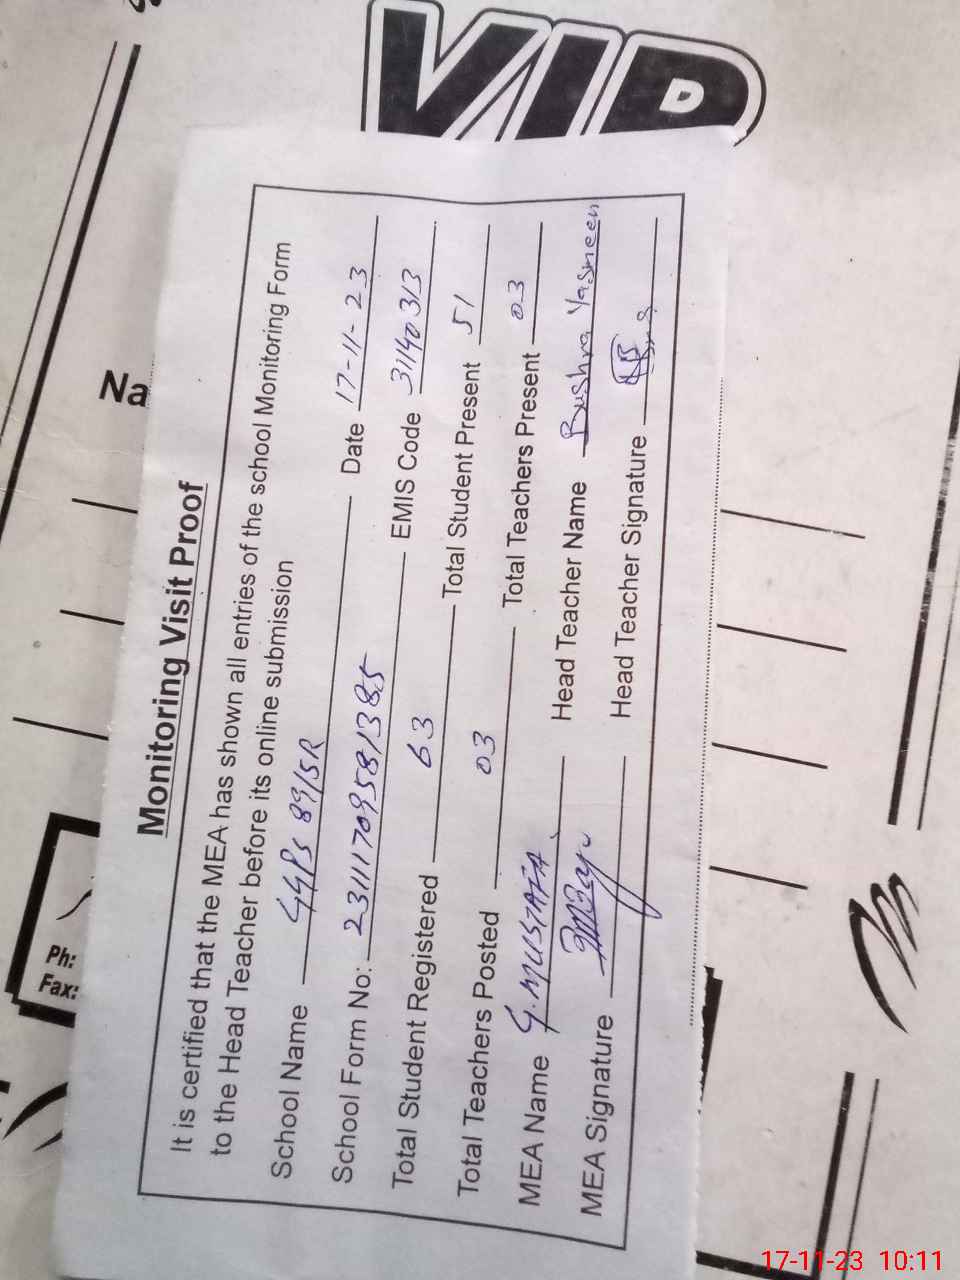 VIP
Na
Ph:
Fax:
Monitoring Visit Proof
It is certified that the MEA has shown all entries of the school Monitoring Form
to the Head Teacher before its online submission
School Name GGPS 89/5R Date 17-11-23
School Form No: 23111709581385 EMIS Code 31140313
Total Student Registered 63 Total Student Present 51
Total Teachers Posted 03 Total Teachers Present 03
MEA Name G. MUSTAFA Head Teacher Name Bushra Yasmeen
MEA Signature Head Teacher Signature
17-11-23 10:11